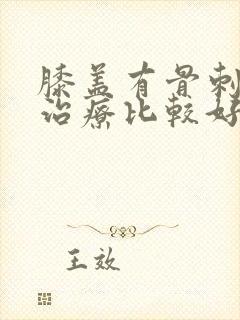 膝盖有骨刺
治疗比较好
王效